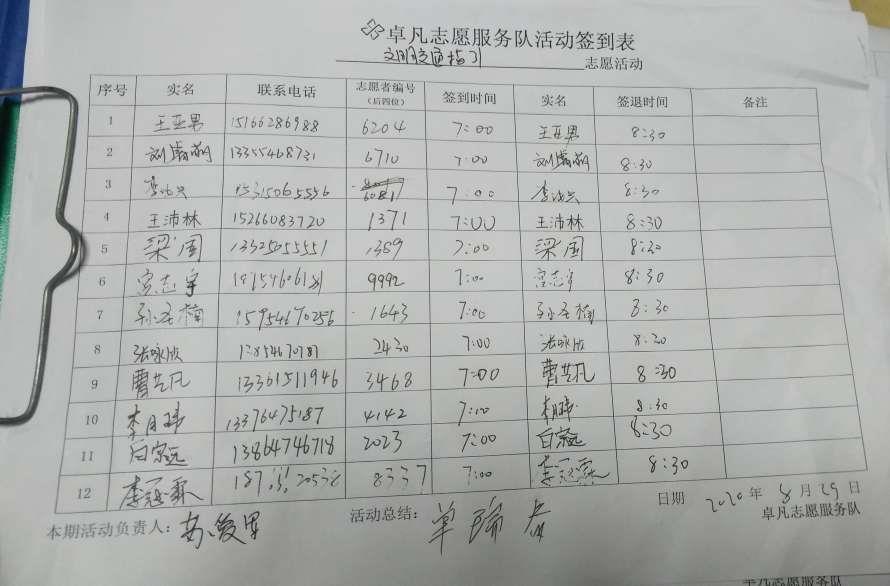 卓凡志愿服务队活动签到表
文明交通指引 志愿活动
序号 实名 联系电话 志愿者编号（后四位） 签到时间 实名 签退时间 备注
1 王亚男 15166286988 6204 7:00 王亚男 8:30
2 13355468731 6710 7:00 8:30
3 15315065556 6081 7:00 8:30
4 王沛林 15266083720 1371 7:00 王沛林 8:30
5 梁国 13325055551 1389 7:00 梁国 8:30
6 宫志宇 9992 7:00 宫志宇 8:30
7 孙圣楠 15954670256 1643 7:00 孙圣楠 8:30
8 张咏欣 2430 7:00 张咏欣 8:30
9 曹芸凡 13361511946 3468 7:00 曹芸凡 8:30
10 李月玮 13376475187 4142 7:00 李月玮 8:30
11 白宗远 13864746718 2023 7:00 白宗远 8:30
12 李冠霖 8337 7:00 李冠霖 8:30
本期活动负责人： 活动总结： 日期 2020年8月29日
卓凡志愿服务队